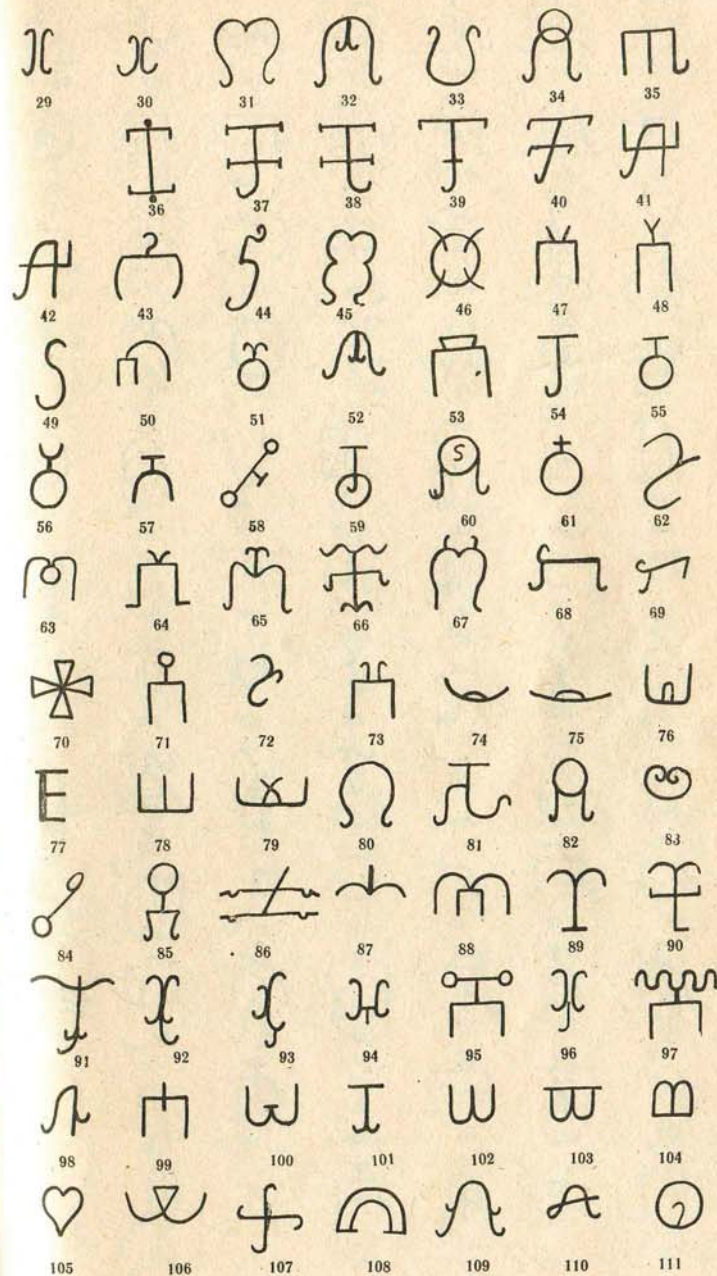 29 30 31 32 33 34 35
36 37 38 39 40 41
42 43 44 45 46 47 48
49 50 51 52 53 54 55
56 57 58 59 60 61 62
63 64 65 66 67 68 69
70 71 72 73 74 75 76
77 78 79 80 81 82 83
84 85 86 87 88 89 90
91 92 93 94 95 96 97
98 99 100 101 102 103 104
105 106 107 108 109 110 111